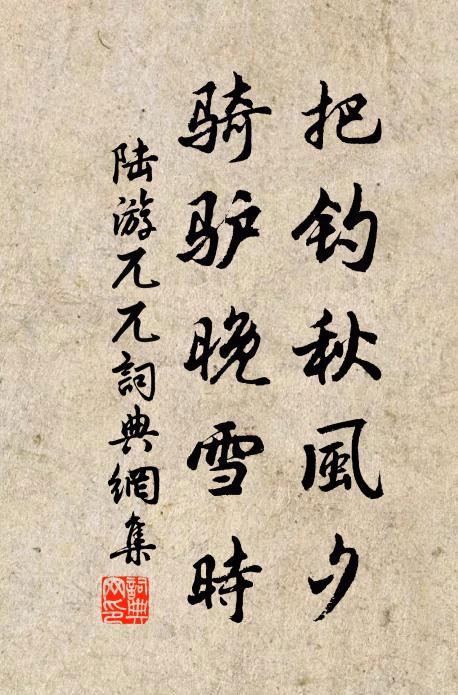 把钓秋風夕
骑驴晚雪時
陆游兀兀詞典網集
詞典
网印